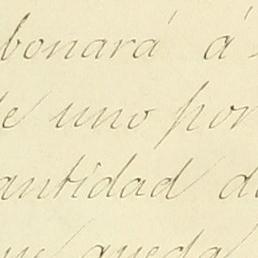 bonará á
de uno por
antidad de
que queda